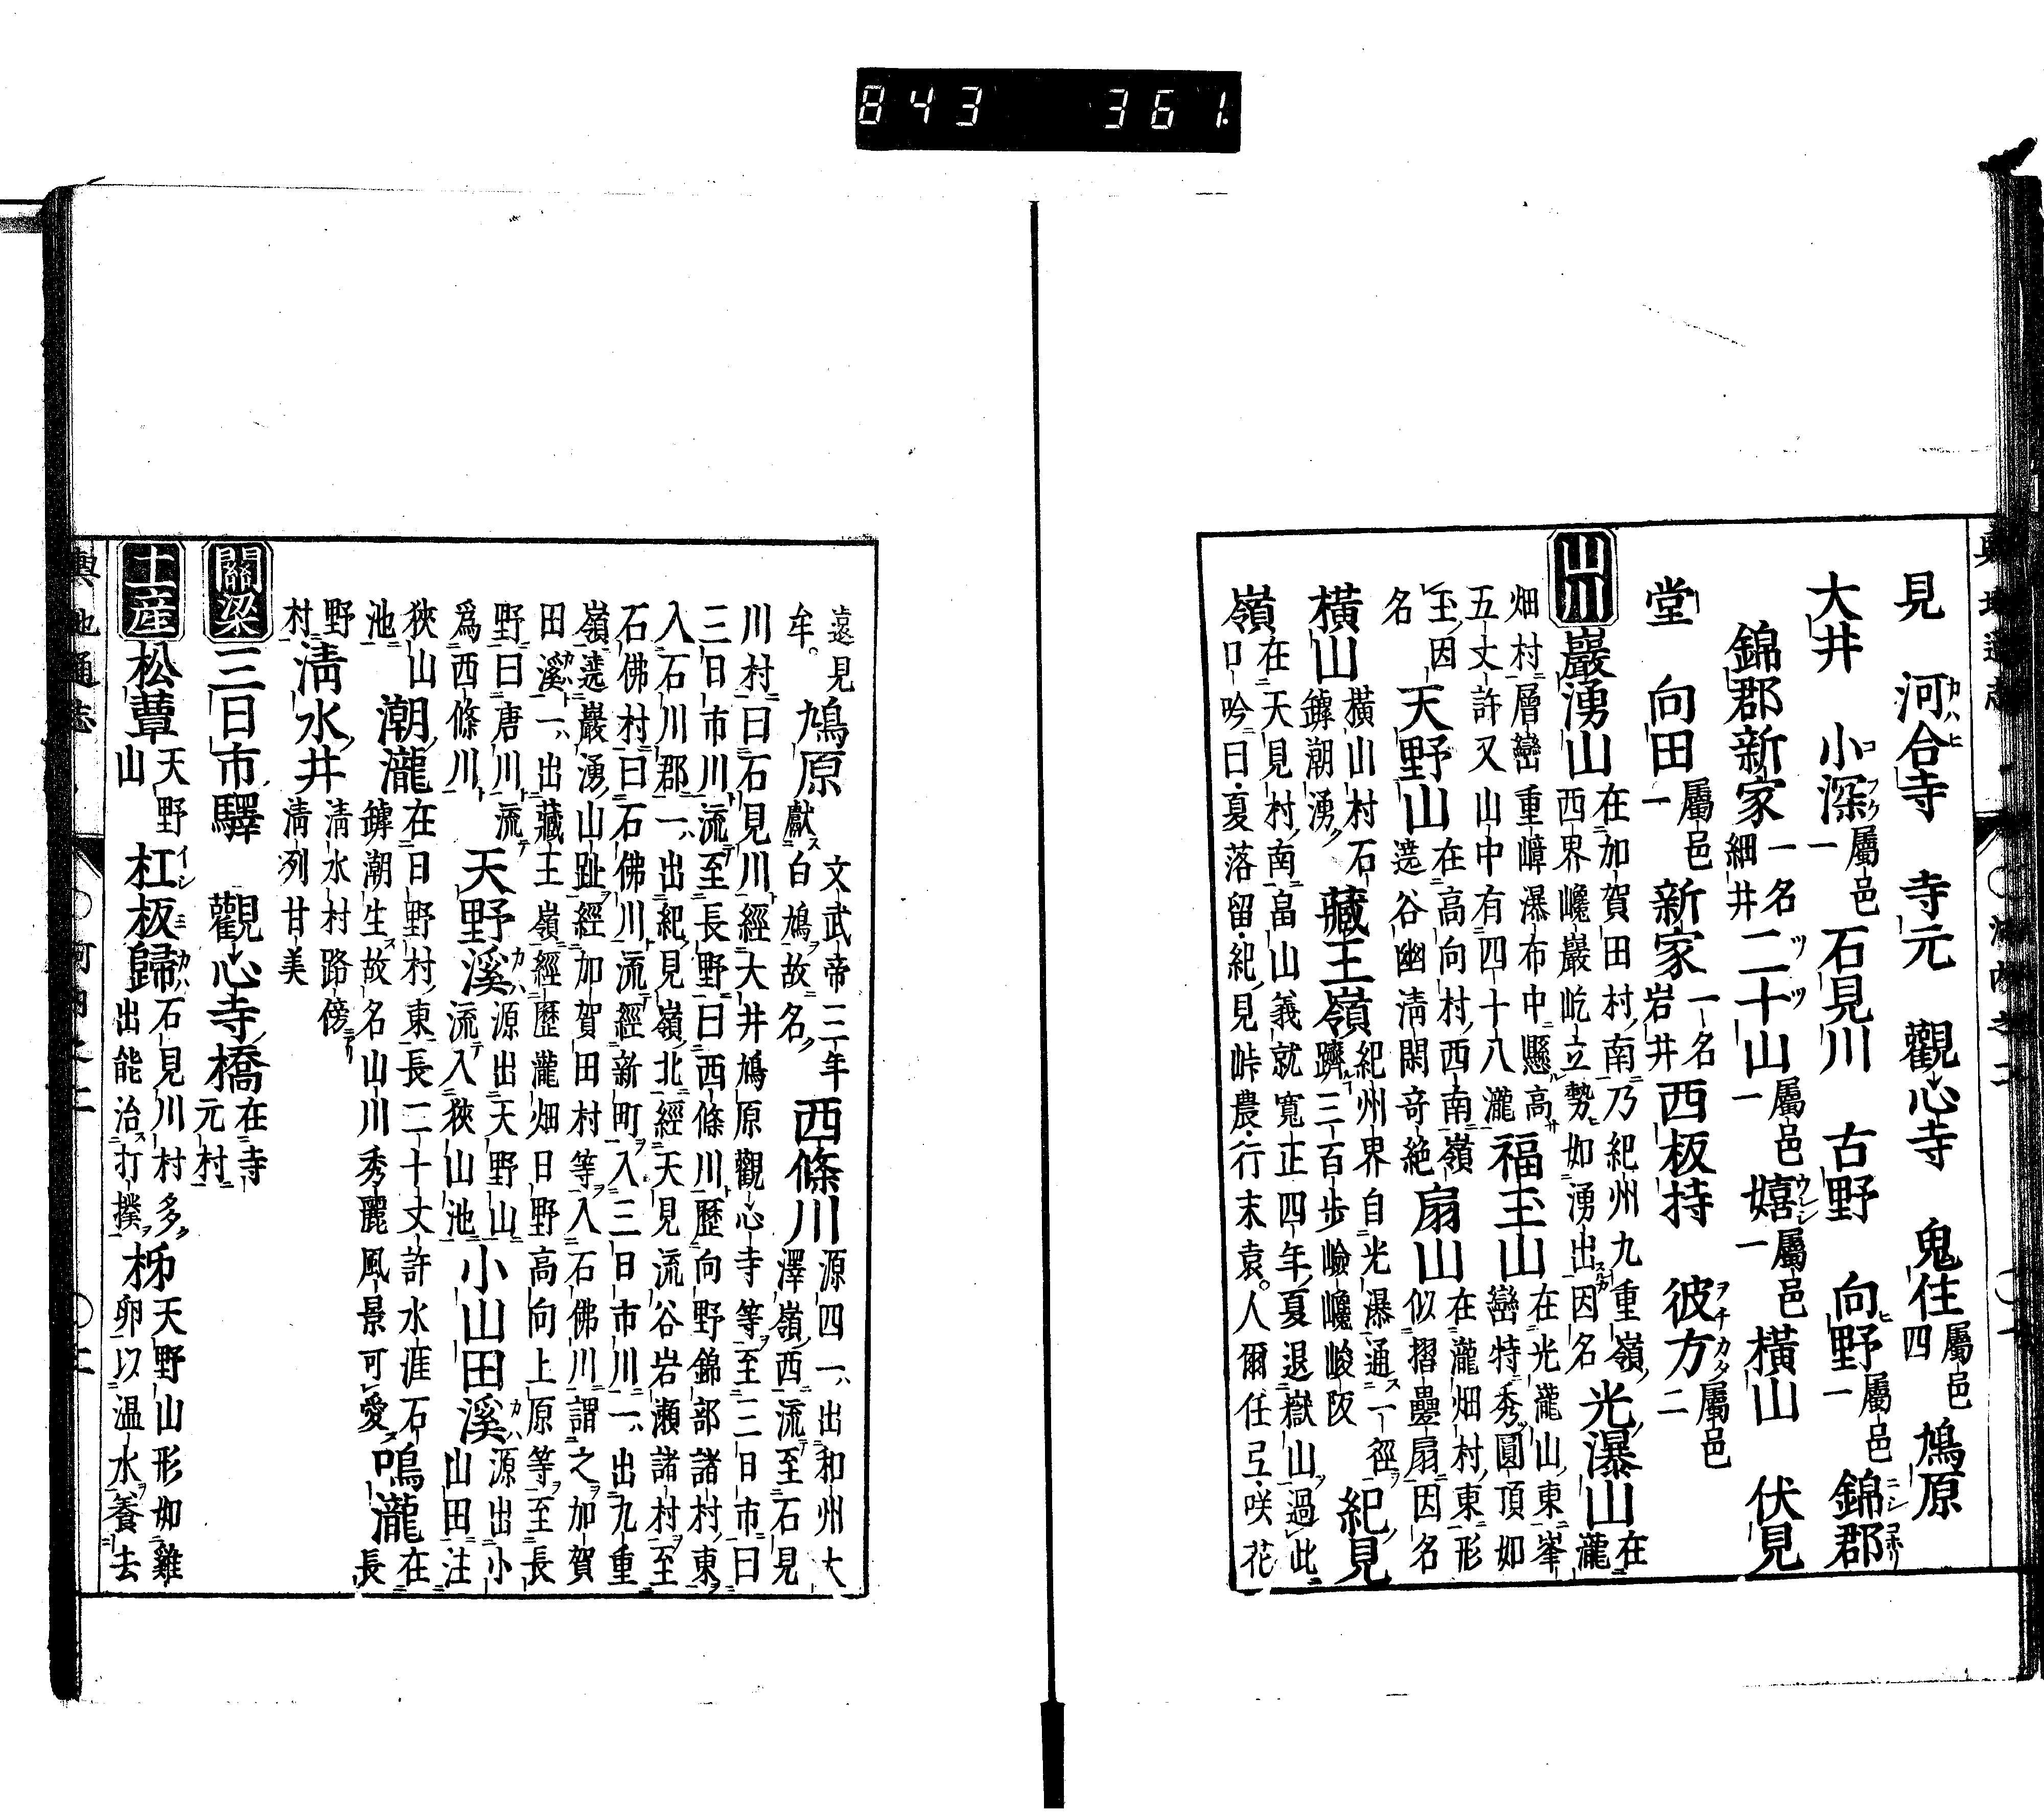 843 361.
見 河合寺 寺元 觀心寺 鬼住屬邑四 鳩原
大井 小深屬邑一 石見川 古野 向野屬邑一 錦郡
錦郡新家一名細井 二十山屬邑一 嬉屬邑一 橫山 伏見
堂 向田屬邑一 新家一名岩井 西板持 彼方屬邑二
山川 巖湧山在加賀田村南乃紀州九重嶺
西界巉巖屹立勢如湧出因名 光瀑山在瀧
畑村層巒重嶂瀑布中懸高
五丈許又山中有四十八瀧 福玉山在光瀧山東峯
巒特秀圓頂如
玉因
名 天野山在高向村西南嶺
遶谷幽淸閑奇絶 扇山在瀧畑村東形
似摺疊扇因名
橫山橫山村石
罅潮湧 藏王嶺紀州界自光瀑通一徑
躋三百步嶮巉峻阪 紀見
嶺在天見村南畠山義就寬正四年夏退嶽山過此
口吟曰夏落留紀見峠農行末袁人爾任弖咲花
遠見
牟 鳩原文武帝三年
獻白鳩故名 西條川源四一出和州大
澤嶺西流至石見
川村曰石見川經大井鳩原觀心寺等至三日市曰
三日市川流至長野曰西條川歷向野錦部諸村東
入石川郡一出紀見嶺北經天見流谷岩瀬諸村至
石佛村曰石佛川流經新町入三日市川一出九重
嶺遶巖湧山趾經加賀田村等入石佛川謂之加賀
田溪一出藏王嶺經歷瀧畑日野高向上原等至長
野曰唐川流
爲西條川 天野溪源出天野山
流入狹山池 小山田溪源出小
山田注
狹山
池 潮瀧在日野村東長二十丈許水涯石
罅潮生故名山川秀麗風景可愛 鳴瀧在
長
野
村 淸水井淸水村路傍
淸列甘美
關梁 三日市驛 觀心寺橋在寺
元村
土產 松蕈天野
山 杠板歸石見川村多
出能治打撲 柹天野山形如雞
卵以温水養去
輿地通志 河内之二 二